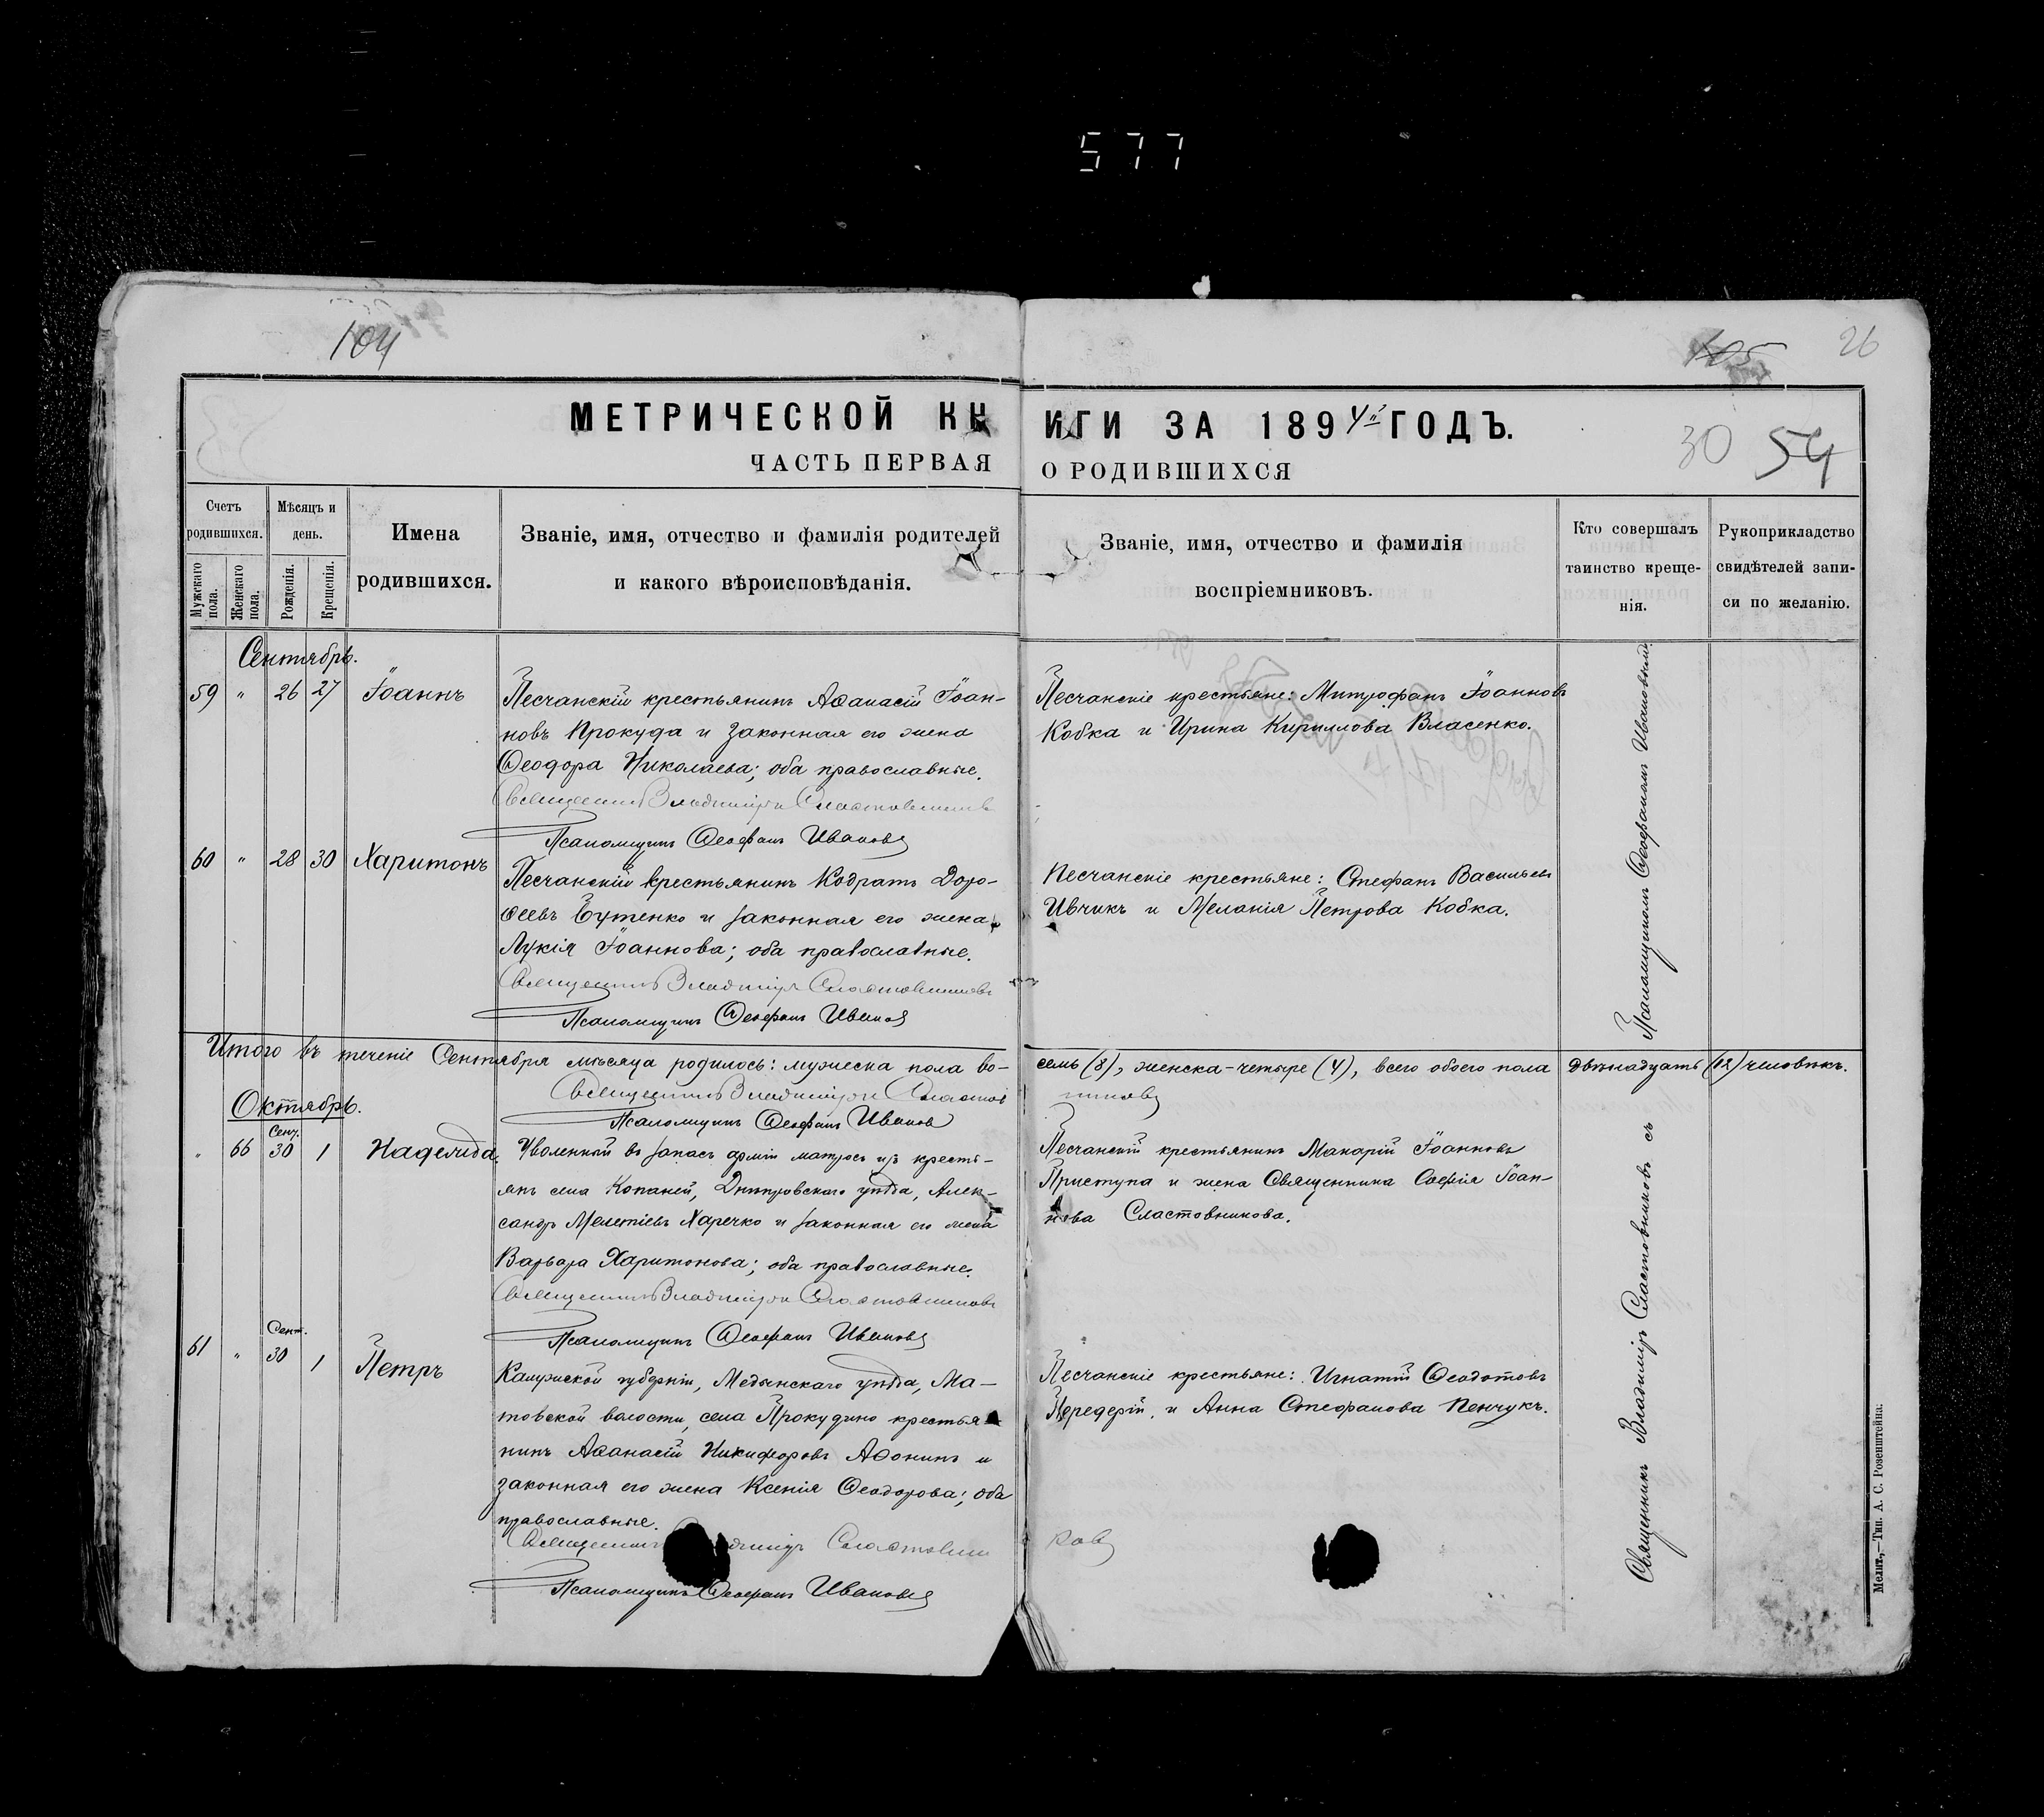 577
104
105
26
МЕТРИЧЕСКОЙ КНИГИ ЗА 1894й ГОДЪ.
30 54
ЧАСТЬ ПЕРВАЯ О РОДИВШИХСЯ
Счетъ родившихся.
Мужскаго пола.
Женскаго пола.
Мѣсяцъ и день.
Рожденія.
Крещенія.
Имена родившихся.
Званіе, имя, отчество и фамилія родителей
и какого вѣроисповѣданія.
Званіе, имя, отчество и фамилія
воспріемниковъ.
Кто совершалъ
таинство креще-
нія.
Рукоприкладство
свидѣтелей запи-
си по желанію.
Сентябрь.
59 " 26 27 Іоаннъ
Песчанскій крестьянинъ Аѳанасій Іоан-
новъ Прокуда и законная его жена
Ѳеодора Николаева; оба православные.
Священникъ Владиміръ Сластовниковъ
Псаломщикъ Ѳеофанъ Ивановъ
Песчанскіе крестьяне: Митрофанъ Іоанновъ
Кобка и Ирина Кириллова Власенко.
60 " 28 30 Харитонъ
Песчанскій крестьянинъ Кодратъ Доро-
ѳеевъ Бутенко и законная его жена
Лукія Іоаннова; оба православные.
Священникъ Владиміръ Сластовниковъ
Псаломщикъ Ѳеофанъ Ивановъ
Песчанскіе крестьяне: Стефанъ Васильевъ
Ивчикъ и Меланія Петрова Кобка.
Итого въ теченіе Сентября мѣсяца родилось: мужеска пола во-
семь (8), женска-четыре (4), всего обоего пола двѣнадцать (12) человѣкъ.
Священникъ Владиміръ Сластовниковъ
Псаломщикъ Ѳеофанъ Ивановъ
Октябрь.
" 66 Сент. 30 1 Надежда.
Уволенный въ запасъ арміи матросъ изъ кресть-
янъ села Копаней, Днѣпровскаго уѣзда, Алек-
сандръ Мелетіевъ Харечко и законная его жена
Варвара Харитонова; оба православные.
Священникъ Владиміръ Сластовниковъ
Псаломщикъ Ѳеофанъ Ивановъ
Песчанскій крестьянинъ Макарій Іоанновъ
Приступа и жена Священника Софія Іоан-
нова Сластовникова.
61 " Сент. 30 1 Петръ
Калужской губерніи, Медынскаго уѣзда, Ма-
товской волости, села Прокудино крестья-
нинъ Аѳанасій Никифоровъ Аѳонинъ и
законная его жена Ксенія Ѳеодорова; оба
православные.
Священникъ Владиміръ Сластовниковъ
Псаломщикъ Ѳеофанъ Ивановъ
Песчанскіе крестьяне: Игнатій Ѳеодотовъ
Передерій, и Анна Стефанова Пенчукъ.
Священникъ Владиміръ Сластовниковъ съ
Псаломщикомъ Ѳеофаномъ Ивановымъ.
Мелит.,—Тип. А. С. Розенштейна.